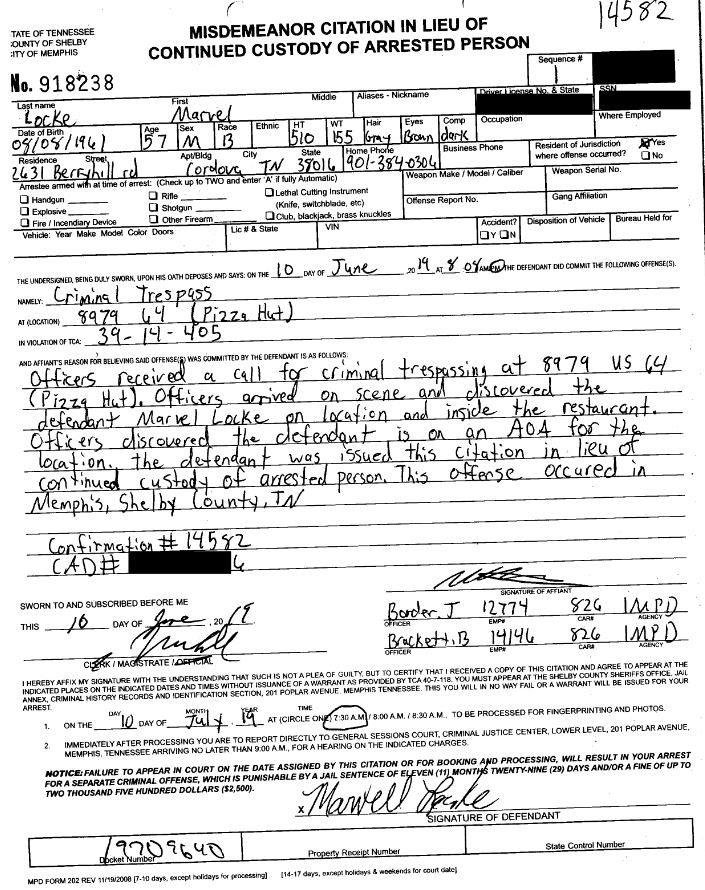 14582
STATE OF TENNESSEE
COUNTY OF SHELBY
CITY OF MEMPHIS
MISDEMEANOR CITATION IN LIEU OF
CONTINUED CUSTODY OF ARRESTED PERSON
No. 918238
Sequence #
1
Last name First Middle Aliases - Nickname Driver License No. & State SSN
Locke Marvel
Date of Birth Age Sex Race Ethnic HT WT Hair Eyes Comp Occupation Where Employed
08/08/1961 57 M B 510 155 Gray Brown dark
Residence Street Apt/Bldg City State Home Phone Business Phone Resident of Jurisdiction where offense occurred? Yes No
2631 Berryhill rd Cordova TN 38016 901-384-0306
Arrestee armed with at time of arrest: (Check up to TWO and enter 'A' if fully Automatic) Weapon Make / Model / Caliber Weapon Serial No.
Handgun Rifle Lethal Cutting Instrument
Explosive Shotgun (Knife, switchblade, etc) Offense Report No. Gang Affiliation
Fire / Incendiary Device Other Firearm Club, blackjack, brass knuckles
Vehicle: Year Make Model Color Doors Lic # & State VIN Accident? Y N Disposition of Vehicle Bureau Held for
THE UNDERSIGNED, BEING DULY SWORN, UPON HIS OATH DEPOSES AND SAYS: ON THE 10 DAY OF June, 2019 AT 8:08 AM/PM THE DEFENDANT DID COMMIT THE FOLLOWING OFFENSE(S).
NAMELY: Criminal Trespass
AT (LOCATION) 8979 64 (Pizza Hut)
IN VIOLATION OF TCA: 39-14-405
AND AFFIANT'S REASON FOR BELIEVING SAID OFFENSE(S) WAS COMMITTED BY THE DEFENDANT IS AS FOLLOWS:
Officers received a call for criminal trespassing at 8979 US 64
(Pizza Hut). Officers arrived on scene and discovered the
defendant Marvel Locke on location and inside the restaurant.
Officers discovered the defendant is on an AOA for the
location. The defendant was issued this citation in lieu of
continued custody of arrested person. This offense occured in
Memphis, Shelby County, TN
Confirmation # 14582
CAD# 6
SIGNATURE OF AFFIANT
SWORN TO AND SUBSCRIBED BEFORE ME
Border, J 12774 826 MPD
OFFICER EMP# CAR# AGENCY
THIS 10 DAY OF June, 2019
Brackett, B 14146 826 MPD
OFFICER EMP# CAR# AGENCY
CLERK / MAGISTRATE / OFFICIAL
I HEREBY AFFIX MY SIGNATURE WITH THE UNDERSTANDING THAT SUCH IS NOT A PLEA OF GUILTY, BUT TO CERTIFY THAT I RECEIVED A COPY OF THIS CITATION AND AGREE TO APPEAR AT THE
INDICATED PLACES ON THE INDICATED DATES AND TIMES WITHOUT ISSUANCE OF A WARRANT AS PROVIDED BY TCA 40-7-118. YOU MUST APPEAR AT THE SHELBY COUNTY SHERIFFS OFFICE, JAIL
ANNEX, CRIMINAL HISTORY RECORDS AND IDENTIFICATION SECTION, 201 POPLAR AVENUE, MEMPHIS TENNESSEE. THIS YOU WILL IN NO WAY FAIL OR A WARRANT WILL BE ISSUED FOR YOUR
ARREST.
DAY MONTH YEAR TIME
1. ON THE 10 DAY OF July, 19 AT (CIRCLE ONE) 7:30 A.M. / 8:00 A.M. / 8:30 A.M., TO BE PROCESSED FOR FINGERPRINTING AND PHOTOS.
2. IMMEDIATELY AFTER PROCESSING YOU ARE TO REPORT DIRECTLY TO GENERAL SESSIONS COURT, CRIMINAL JUSTICE CENTER, LOWER LEVEL, 201 POPLAR AVENUE,
MEMPHIS, TENNESSEE ARRIVING NO LATER THAN 9:00 A.M., FOR A HEARING ON THE INDICATED CHARGES.
NOTICE: FAILURE TO APPEAR IN COURT ON THE DATE ASSIGNED BY THIS CITATION OR FOR BOOKING AND PROCESSING, WILL RESULT IN YOUR ARREST
FOR A SEPARATE CRIMINAL OFFENSE, WHICH IS PUNISHABLE BY A JAIL SENTENCE OF ELEVEN (11) MONTHS TWENTY-NINE (29) DAYS AND/OR A FINE OF UP TO
TWO THOUSAND FIVE HUNDRED DOLLARS ($2,500).
x Marvell Locke
SIGNATURE OF DEFENDANT
19709640
Docket Number Property Receipt Number State Control Number
MPD FORM 202 REV 11/19/2008 [7-10 days, except holidays for processing] [14-17 days, except holidays & weekends for court date]